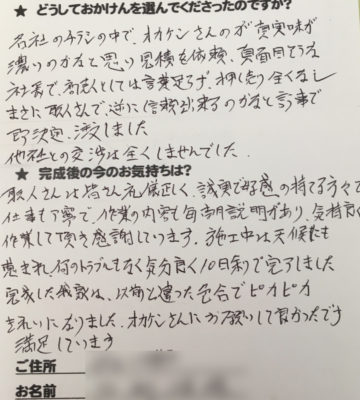 ★ どうしておかけんを選んでくださったのですか?
各社のチラシの中で、オカケンさんのが真実味が
濃いのかなと思い見積を依頼、真面目そうな
社長で、商売人としては言葉足らず、押し売り全くなし
まさに職人さんで、逆に信頼出来るのかなと記事で
即決
他社との交渉は全くしませんでした。
★ 完成後の今のお気持ちは?
職人さんは皆さん礼儀正しく、誠実で好感の持てる方々で
仕事も丁寧で、作業の内容も毎朝説明があり、気持良く
作業して頂き感謝しています。施工中は天候にも
恵まれ何のトラブルもなく気分良く10日余りで完了しました
完成した我家は、以前と違った色合でピカピカ
きれいになりました。オカケンさんにお願いして良かったです
満足しています
ご住所
お名前